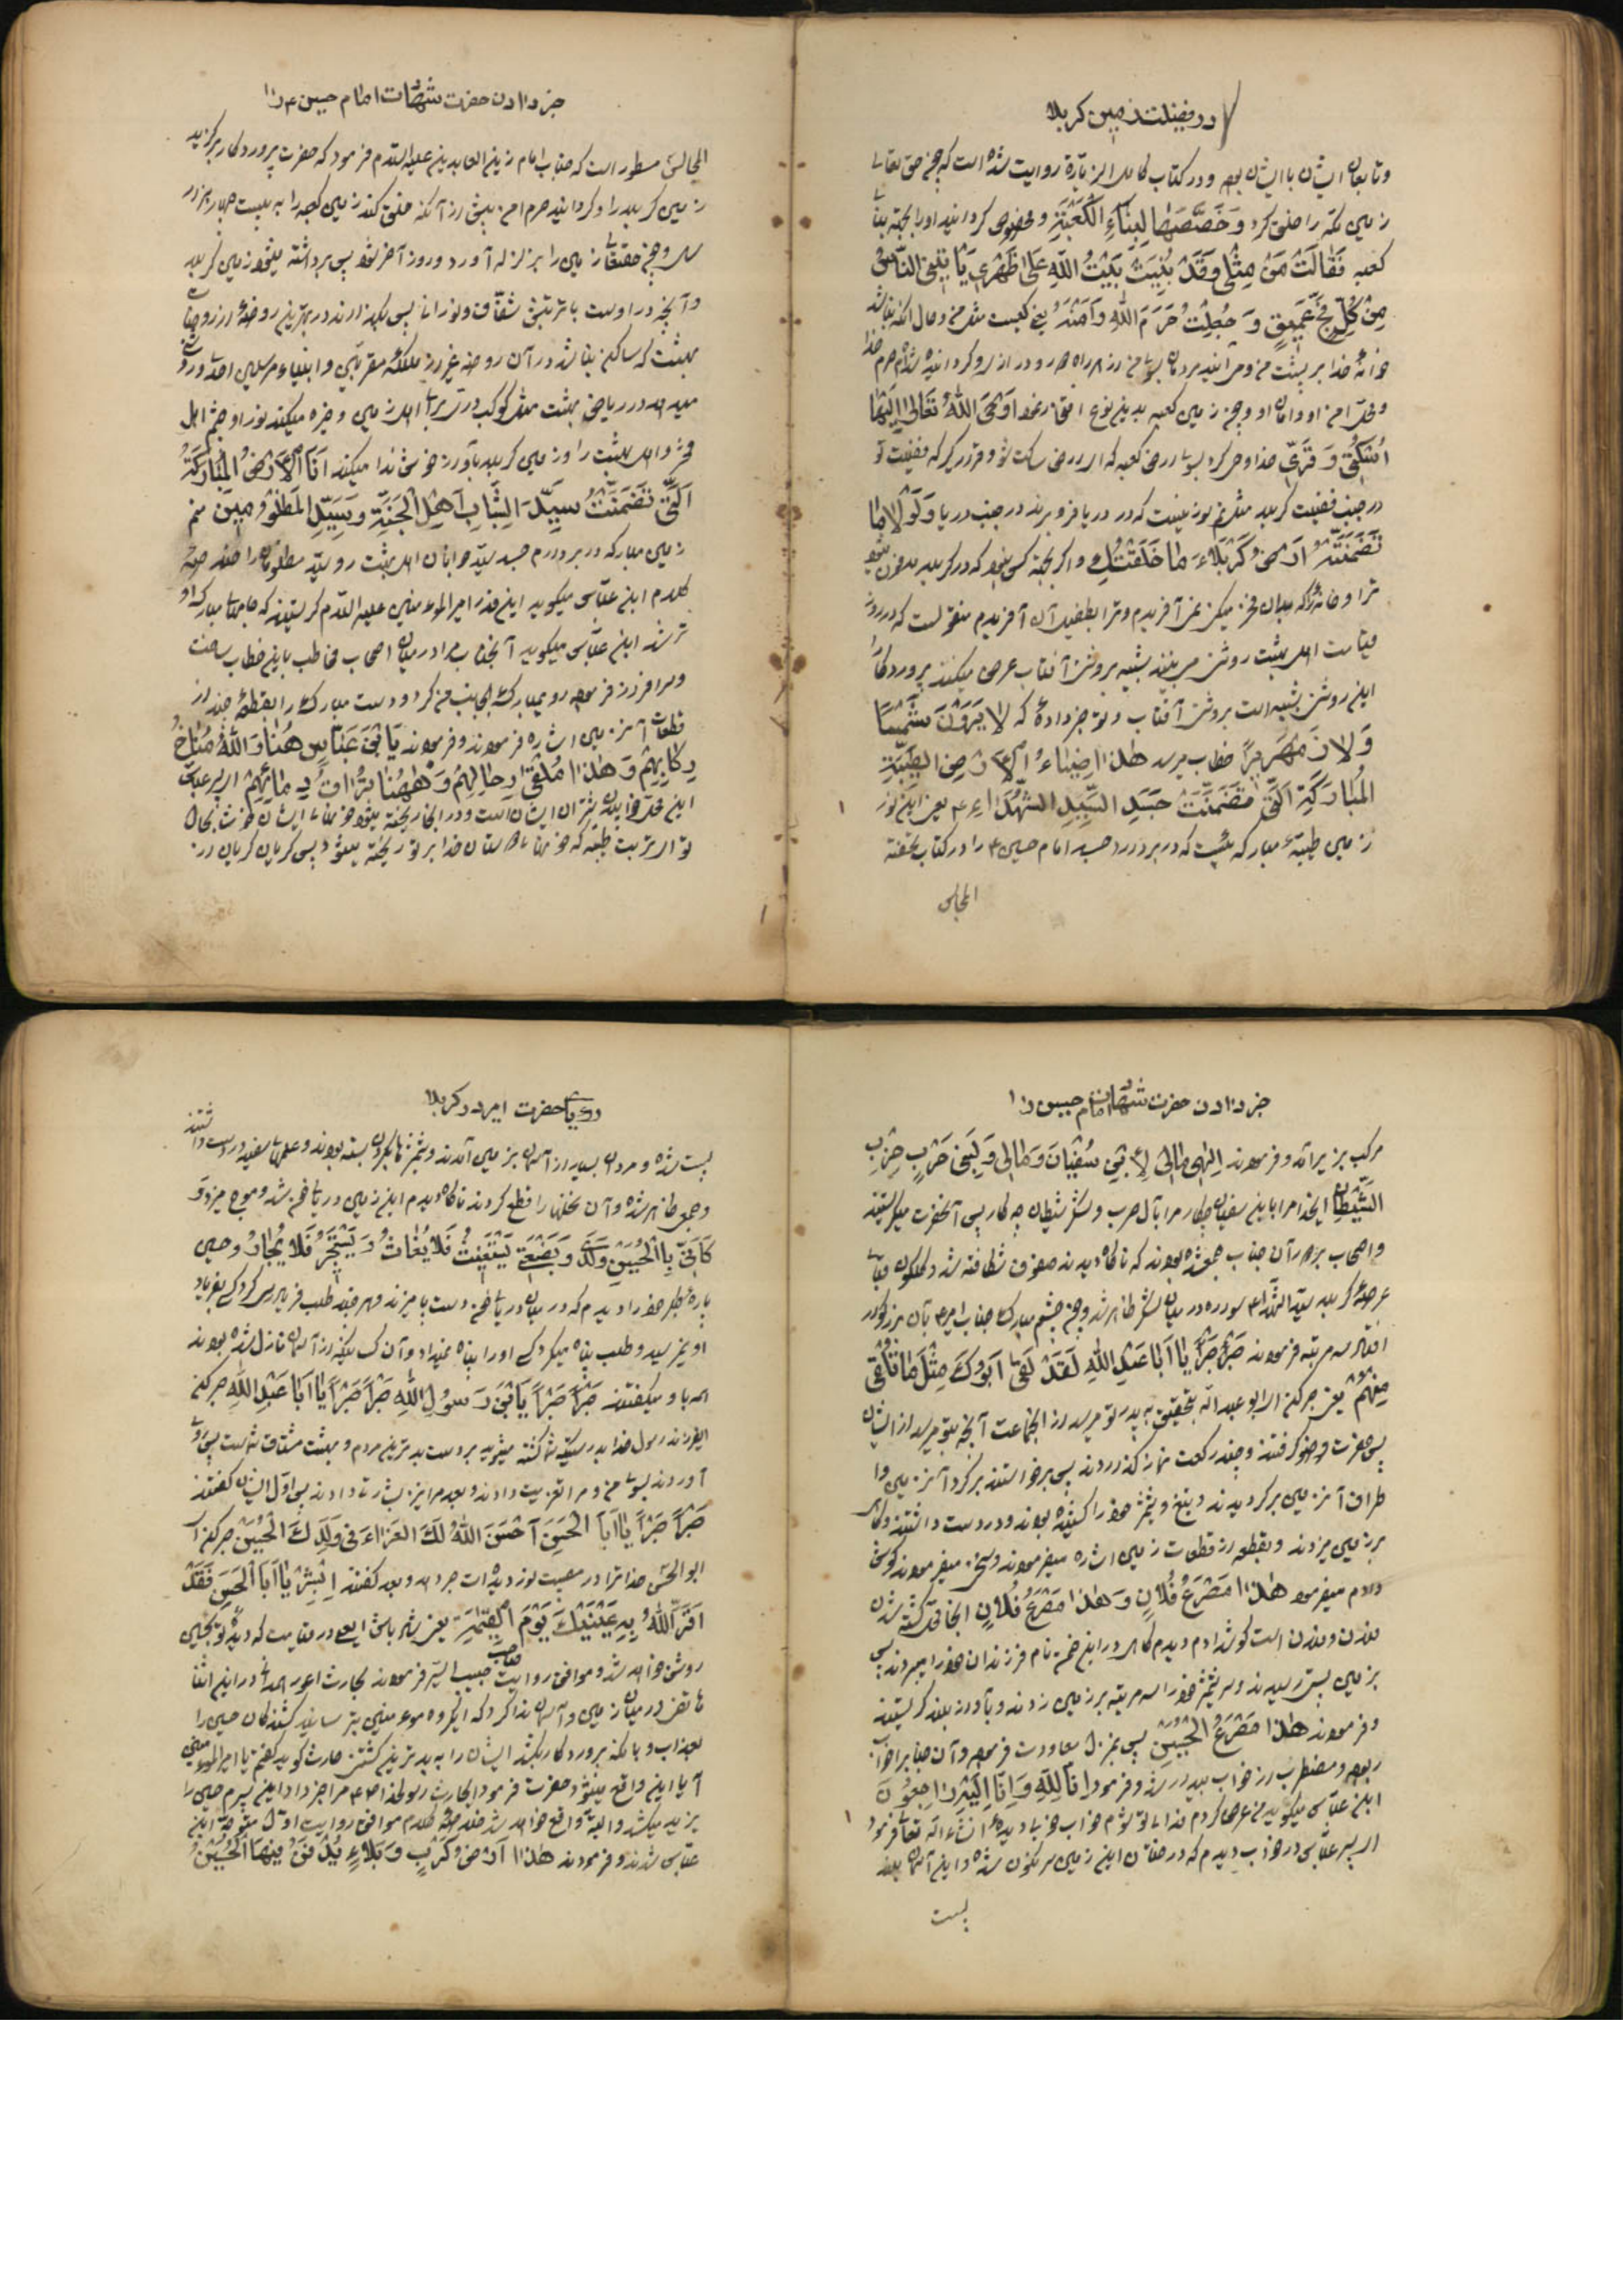 در فضیلت زمین کربلا
وتابعان ایشان با ایشان بود و در کتاب کامل الزیارة روایت شده است که چون حق تعالی
زمین مکه را خلق کرد وَخَصَّصَهٰا لِبِنٰاءِ الْکَعْبَةِ و مخصوص گردانید او را بجهة بنای
کعبه فَقٰالَتْ مَنْ مِثْلی وَقَدْ بُنِیَتْ بَیْتُ اللّٰهِ عَلیٰ ظَهْری یَأْتینی النّٰاسُ
مِنْ کُلِّ فَجٍّ عَمیقٍ وَ جُعِلْتُ حَرَمَ اللّٰهِ وَاَمْنَهُ یعنی کیست مثل من و حال آنکه بنا شد
خانهٔ خدا بر پشت من و می آیند مردمان بسوی من از هر راه دور و دراز و گردانیده شده ام حرم خدا
و محل امن او و امان او و چون زمین کعبه بدین نوع افتخار نمود اَوْحَی اللّٰهُ تَعٰالیٰ اِلَیْهٰا
اُسْکُتی وَ قَرّی خدا وحی کرد بسوی ارض کعبه که ای ارض ساکت شو و قرار گیر که فضیلت تو
در جنب فضیلت کربلا مثل نم سوزنیست که در دریا فرو برند در جنب دریا وَلَوْلٰا مٰا
تَضَمَّنَتْهُ اَرْضُ کَرْبَلٰاءَ مٰا خَلَقْتُکِ و اگر بجهة کسی نبود که در کربلا مدفون میشود
ترا و خانهٔ را که بدان فخر میکنی نمی آفریدم و ترا بطفیل آن آفریدم منقولست که در روز
قیامت اهل بهشت روشنی می بینند شبیه بروشنی آفتاب عرض میکنند پروردگارا
این روشنی شبیه است بروشنی آفتاب و تو خبر دادهٔ که لٰا یَرَوْنَ شَمْساً
وَلٰا زَمْهَریراً خطاب میرسد هٰذٰا ضِیٰاءُ الْاَرْضِ الطَّیِّبَةِ
الْمُبٰارَکَةِ الَّتی تَضَمَّنَتْ جَسَدِ السَّیِّدِ الشُّهَدٰاءِ ع یعنی این نور
زمین طیبهٔ مبارکه ئیست که در بر دارد جسد امام حسین ع را در کتاب تحفة
المجالس
خبر دادن حضرت شهادت امام حسین ع را
المجالس مسطور است که جناب امام زین العابدین علیه السلام فرمود که حضرت پروردگار برگزید
زمین کربلا را و گردانید حرم امن پیش از آنکه خلق کند زمین کعبه را به بیست چهار هزار
سال و چون حقتعالی زمین را بزلزله آورد در روز آخر شود پس برداشته میشود زمین کربلا
و آنچه در اوست با تربتش شفّاف و نورانی پس بگذارند در بهترین روضهٔ از روضهای
بهشت که ساکن نباشد در آن روضه غیر از ملائکه مقربین و انبیاء مرسلین و نور
میدهد در ریاض بهشت مثل کوکب درّی برای اهل زمین و خیره میکند نور او چشم اهل
محشر و اهل بهشت را و زمین کربلا بآواز خوش ندا میکند اَنَا الْاَرْضُ الْمُبٰارَکَةُ
الَّتی تَضَمَّنَتْ سَیِّدَ الشَّبٰابِ اَهْلِ الْجَنَّةِ وَسَیِّدِ الْمَظْلُومینَ منم
زمین مبارکه در بر دارم جسد سید جوانان اهل بهشت و سید مظلومان را خلاصهٔ
کلام ابن عباس میگوید اینقدر امیر المؤمنین علیه السلام گریستند که محاسن مبارکه او
تر شد ابن عباس میگوید آنجناب مرا در میان اصحاب مخاطب باین خطاب ساخت
و سر افراز فرمود روی مبارک بجانب من کرد و دست مبارک را بقطعهٔ چند از
قطعات آنزمین اشاره فرمودند و فرمودند یَا ابْنَ عَبّٰاسٍ هُنٰا وَاللّٰهِ مُنٰاخُ
رِکٰابِهِمْ وَ هٰذٰا مُلْقیٰ رِحٰالِهِمْ وَ هٰهُنٰا یُرٰاقُ دِمٰائُهُمْ ای پسر عباس
این محل خوابیدن شتران ایشان است و در اینجا ریخته میشود خونهای ایشان خوشا بحال
تو ای تربت طیبه که خونهای دوستان خدا بر تو ریخته میشود پس گریان گریان از
خبر دادن حضرت شهادت امام حسین را
مرکب بزیر آمد و فرمودند اِلٰهی مٰالی لِاَبْنی سُفْیٰانَ وَ مٰالی وَلِبَنی حَرْبٍ حِزْبِ
الشَّیْطٰانِ ایخدا مرا با بنی سفیان چکار مرا بآل حرب و لشکر شیطان چه کار پس آنحضرت میگریستند
و اصحاب بر دور آن جناب جمع شده بودند که ناگاه دیدند صفوف شکافته شد و گلگون قبای
عرصهٔ کربلا سید الشهداء سواره در میان لشکر ظاهر شد و چون چشم مبارک جناب امیر ع بآن بزرگوار
افتاد سه مرتبه فرمودند صَبْراً صَبْراً یٰا اَبٰا عَبْدِ اللّٰهِ لَقَدْ لَقیٰ اَبُوکَ مِثْلَ مٰا تَلْقیٰ
مِنْهُمْ یعنی صبر کن ای ابو عبد الله بتحقیق به پدر تو میرسد از اینجماعت آنچه بتو میرسد از ایشان
پس حضرت وضو گرفتند و چند رکعت نماز گذاردند پس برخواستند بر گرد آنزمین و
اطراف آنزمین بر گردیدند و تیغ و شمشیر خود را کشیده بودند و در دست داشتند و گاهی
بر زمین میزدند و بقطعه از قطعات زمین اشاره میفرمودند و سخن میفرمودند گوش
دادم میفرمود هٰذٰا مَصْرَعُ فُلٰانٍ وَ هٰذٰا مَصْرَعُ فُلٰانٍ اینجا محل کشته شدن
فلان و فلان است گوش دادم دیدم گاهی در این ضمن نام فرزندان خود را میبردند پس
بزمین پستی رسیدند و سر شمشیر خود را سه مرتبه بر زمین زدند و بآواز بلند گریستند
و فرمودند هٰذٰا مَصْرَعُ الْحُسَیْنِ پس بمنزل معاودت فرمود و آن جناب را خواب
ربود و مضطرب از خواب بیدار شد و فرمود اِنّٰا لِلّٰهِ وَ اِنّٰا اِلَیْهِ رٰاجِعُونَ
ابن عباس میگوید من عرض کردم فدای تو شوم خواب خوب دیدهٔ انشاء الله تعالی فرمود
ای پسر عباس در خواب دیدم که درختان این زمین سرنگون شده و این آسمان بلند
پست
رؤیای حضرت امیر در کربلا
پست شده و مردان بسیار از آسمان بزمین آمدند و شمشیرها بکمر بسته بودند و علمهای سفید در دست داشتند
و جمعی ظاهر شده و آن نخلها را قطع کردند ناگاه دیدم این زمین دریای خون شد و موج میزد وَ
کَاَنّی بِالْحُسَیْنِ وَلَدی وَ بَضْعَتی یَسْتَغیثُ فَلٰا یُغٰاثُ وَ یَسْتَجیرُ فَلٰا یُجٰارُ و حسین
پارهٔ جگر خود را دیدم که در میان دریای خون دست و پا میزند و هر چند طلب فریاد رس کرد کسی بفریاد
او نمیرسید و طلب پناه میکرد کسی او را پناه نمیداد و آن کسانیکه از آسمان نازل شده بودند
همه باو میگفتند صَبْراً صَبْراً یَا ابْنَ رَسُولِ اللّٰهِ صَبْراً صَبْراً یٰا اَبٰا عَبْدِ اللّٰهِ صبر کن
ایفرزند رسول خدا بدرستیکه شما کشته میشوید بر دست بدترین مردم و بهشت مشتاق شماست پس روی
آوردند بسوی من و مرا تعزیت دادند و بعد مرا نیز بشارت دادند پس اول ایشان گفتند
صَبْراً صَبْراً یٰا اَبَا الْحَسَنِ اَحْسَنَ اللّٰهُ لَکَ الْعَزٰاءَ فی وَلَدِکَ الْحُسَیْنِ صبر کن ای
ابو الحسن خدا ترا در مصیبت نور دیده ات جر دهد و بعد گفتند اِبْشِرْ یٰا اَبَا الْحَسَنِ فَقَدْ
اَقَرَّ اللّٰهُ بِهِ عَیْنَیْکَ یَوْمَ الْقِیٰمَةِ یعنی بشارت باد ای علی در قیامت که دیدهٔ تو بحسین
روشن خواهد شد و موافق روایت صاحب حبیب السیر فرمودند بحارث اعور همدانی در این اثنا
هاتفی در میان زمین و آسمان ندا کرد که ایگروه مؤمنین بترسانید کشندگان حسین را
بعذاب و بآنکه پروردگار بکشد ایشان را به بدترین کشتن حارث گوید گفتم یا امیر المؤمنین
آیا این واقع میشود حضرت فرمود ایحارث رسولخدا ص مرا خبر داد این پسرم حسین را
یزید میکشد و البته واقع خواهد شد خلاصهٔ کلام موافق روایت اول متوجه ابن
عباس شدند و فرمودند هٰذٰا اَرْضُ کَرْبٍ وَ بَلٰاءٍ یُدْفَنُ فیهَا الْحُسَیْنُ